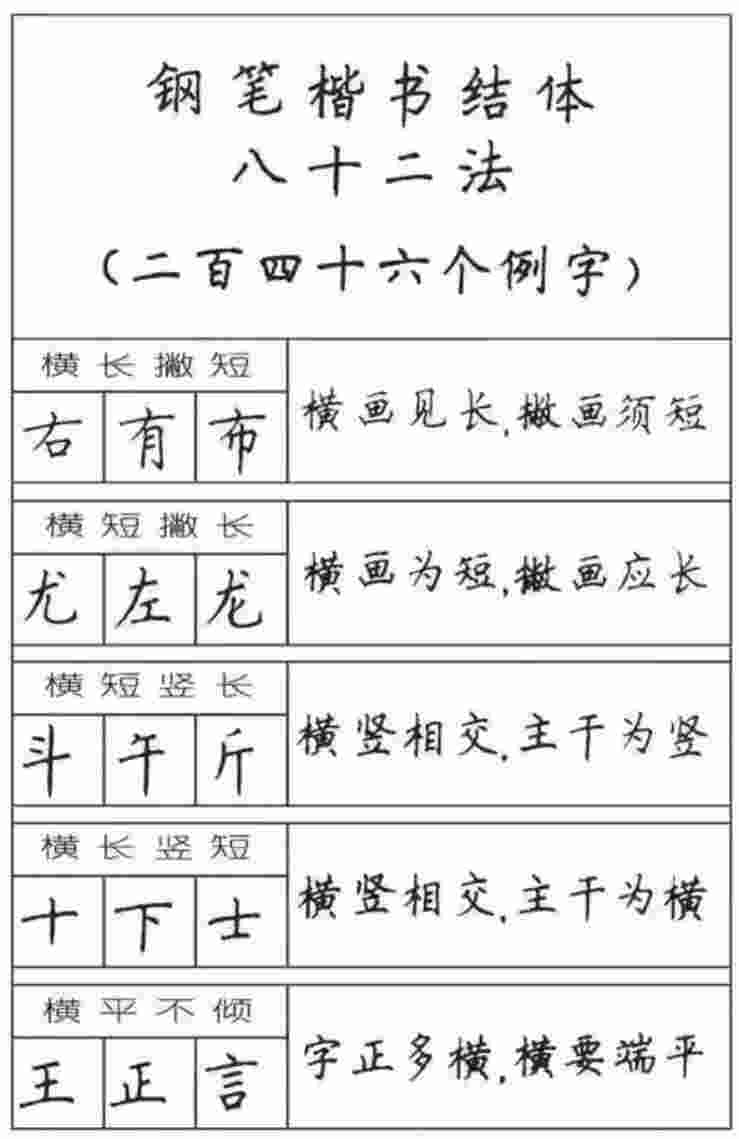 钢笔楷书结体
八十二法
（二百四十六个例字）
横长撇短
右有布
横画见长，撇画须短
横短撇长
尤左龙
横画为短，撇画应长
横短竖长
斗午斤
横竖相交，主干为竖
横长竖短
十下士
横竖相交，主干为横
横平不倾
王正言
字正多横，横要端平